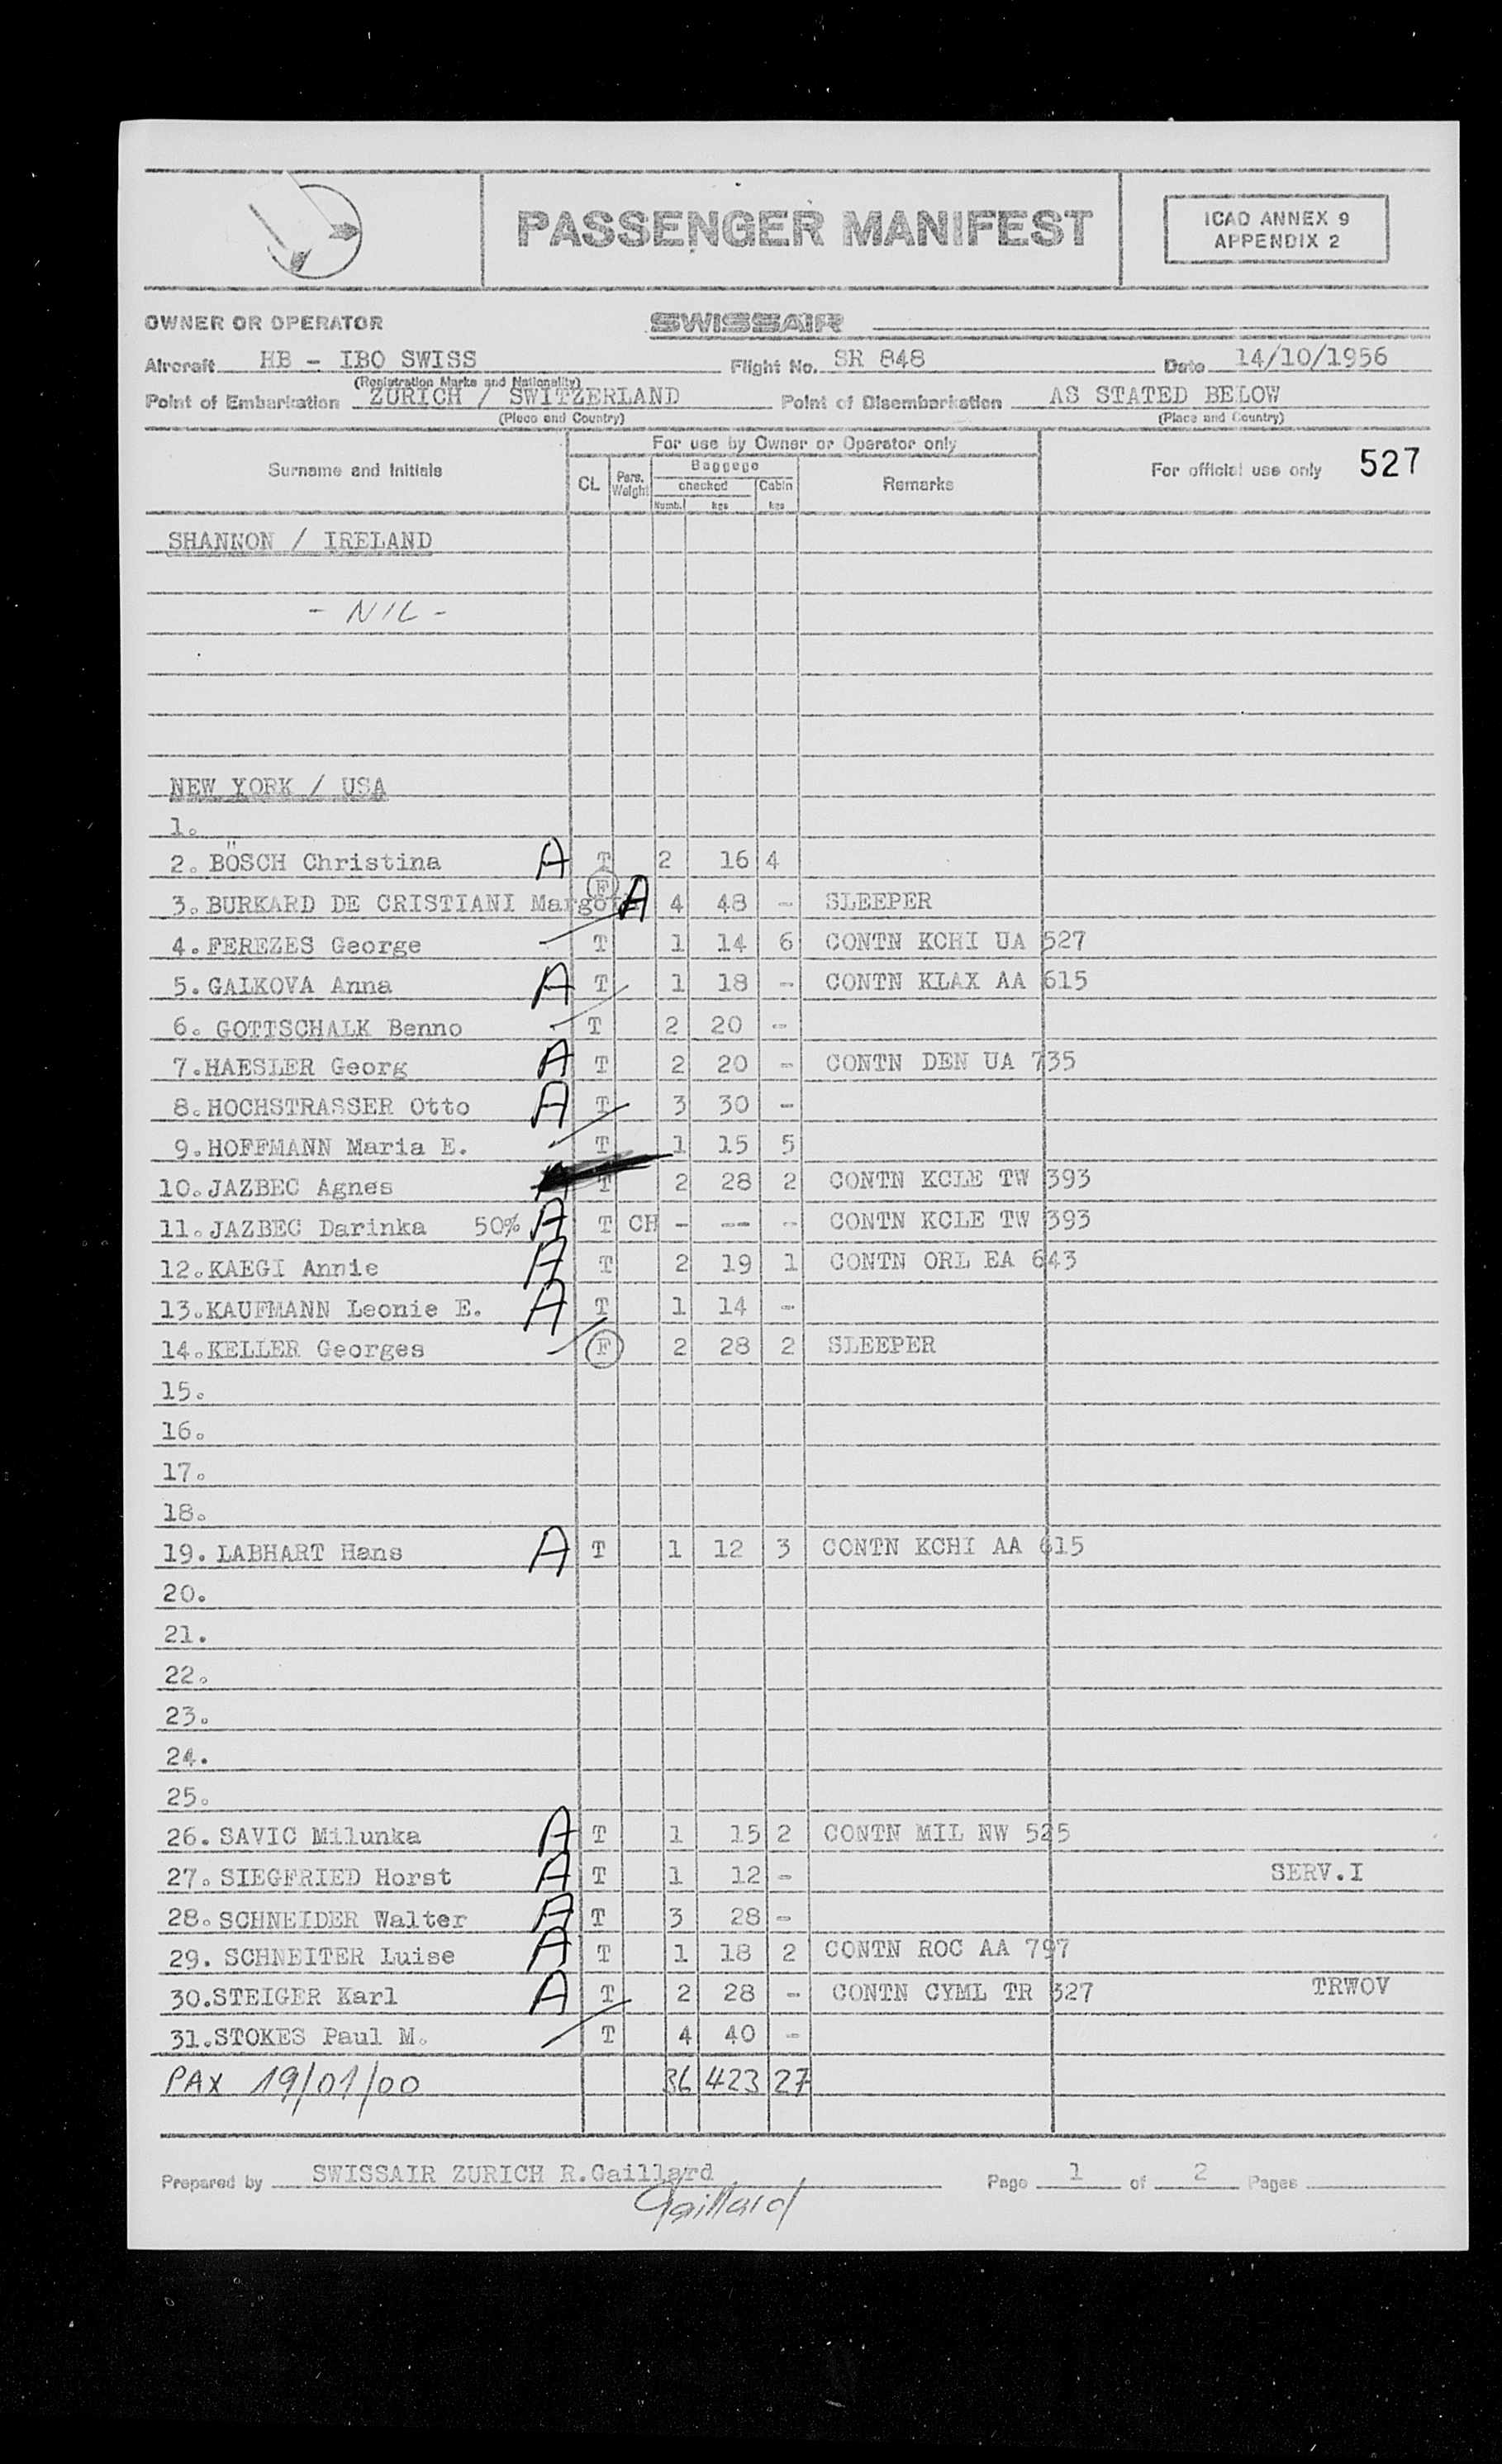 PASSENGER MANIFEST
ICAO ANNEX 9
APPENDIX 2
OWNER OR OPERATOR SWISSAIR
Aircraft HB - IBO SWISS Flight No. SR 848 Date 14/10/1956
(Registration Marks and Nationality)
Point of Embarkation ZURICH / SWITZERLAND Point of Disembarkation AS STATED BELOW
(Place and Country) (Place and Country)
For use by Owner or Operator only
Surname and Initials CL Pers. Weight Baggage checked Numb. kgs Cabin kgs Remarks For official use only 527
SHANNON / IRELAND
- NIL -
NEW YORK / USA
1.
2. BÖSCH Christina A T 2 16 4
3. BURKARD DE CRISTIANI F A 4 48 - SLEEPER
4. FEREZES George T 1 14 6 CONTN KCHI UA 527
5. GALKOVA Anna A T 1 18 - CONTN KLAX AA 615
6. GOTTSCHALK Benno T 2 20 -
7. HAESLER Georg A T 2 20 - CONTN DEN UA 735
8. HOCHSTRASSER Otto A T 3 30 -
9. HOFFMANN Maria E. T 1 15 5
10. JAZBEC Agnes T 2 28 2 CONTN KCLE TW 393
11. JAZBEC Darinka 50% A T CH - -- - CONTN KCLE TW 393
12. KAEGI Annie A T 2 19 1 CONTN ORL EA 643
13. KAUFMANN Leonie E. A T 1 14 -
14. KELLER Georges F 2 28 2 SLEEPER
15.
16.
17.
18.
19. LABHART Hans A T 1 12 3 CONTN KCHI AA 615
20.
21.
22.
23.
24.
25.
26. SAVIC Milunka A T 1 15 2 CONTN MIL NW 525
27. SIEGFRIED Horst A T 1 12 - SERV.I
28. SCHNEIDER Walter A T 3 28 -
29. SCHNEITER Luise A T 1 18 2 CONTN ROC AA 797
30. STEIGER Karl A T 2 28 - CONTN CYML TR 327 TRWOV
31. STOKES Paul M. T 4 40 -
PAX 19/01/00 36 423 27
Prepared by SWISSAIR ZURICH R.Gaillard Page 1 of 2 Pages
Gaillard